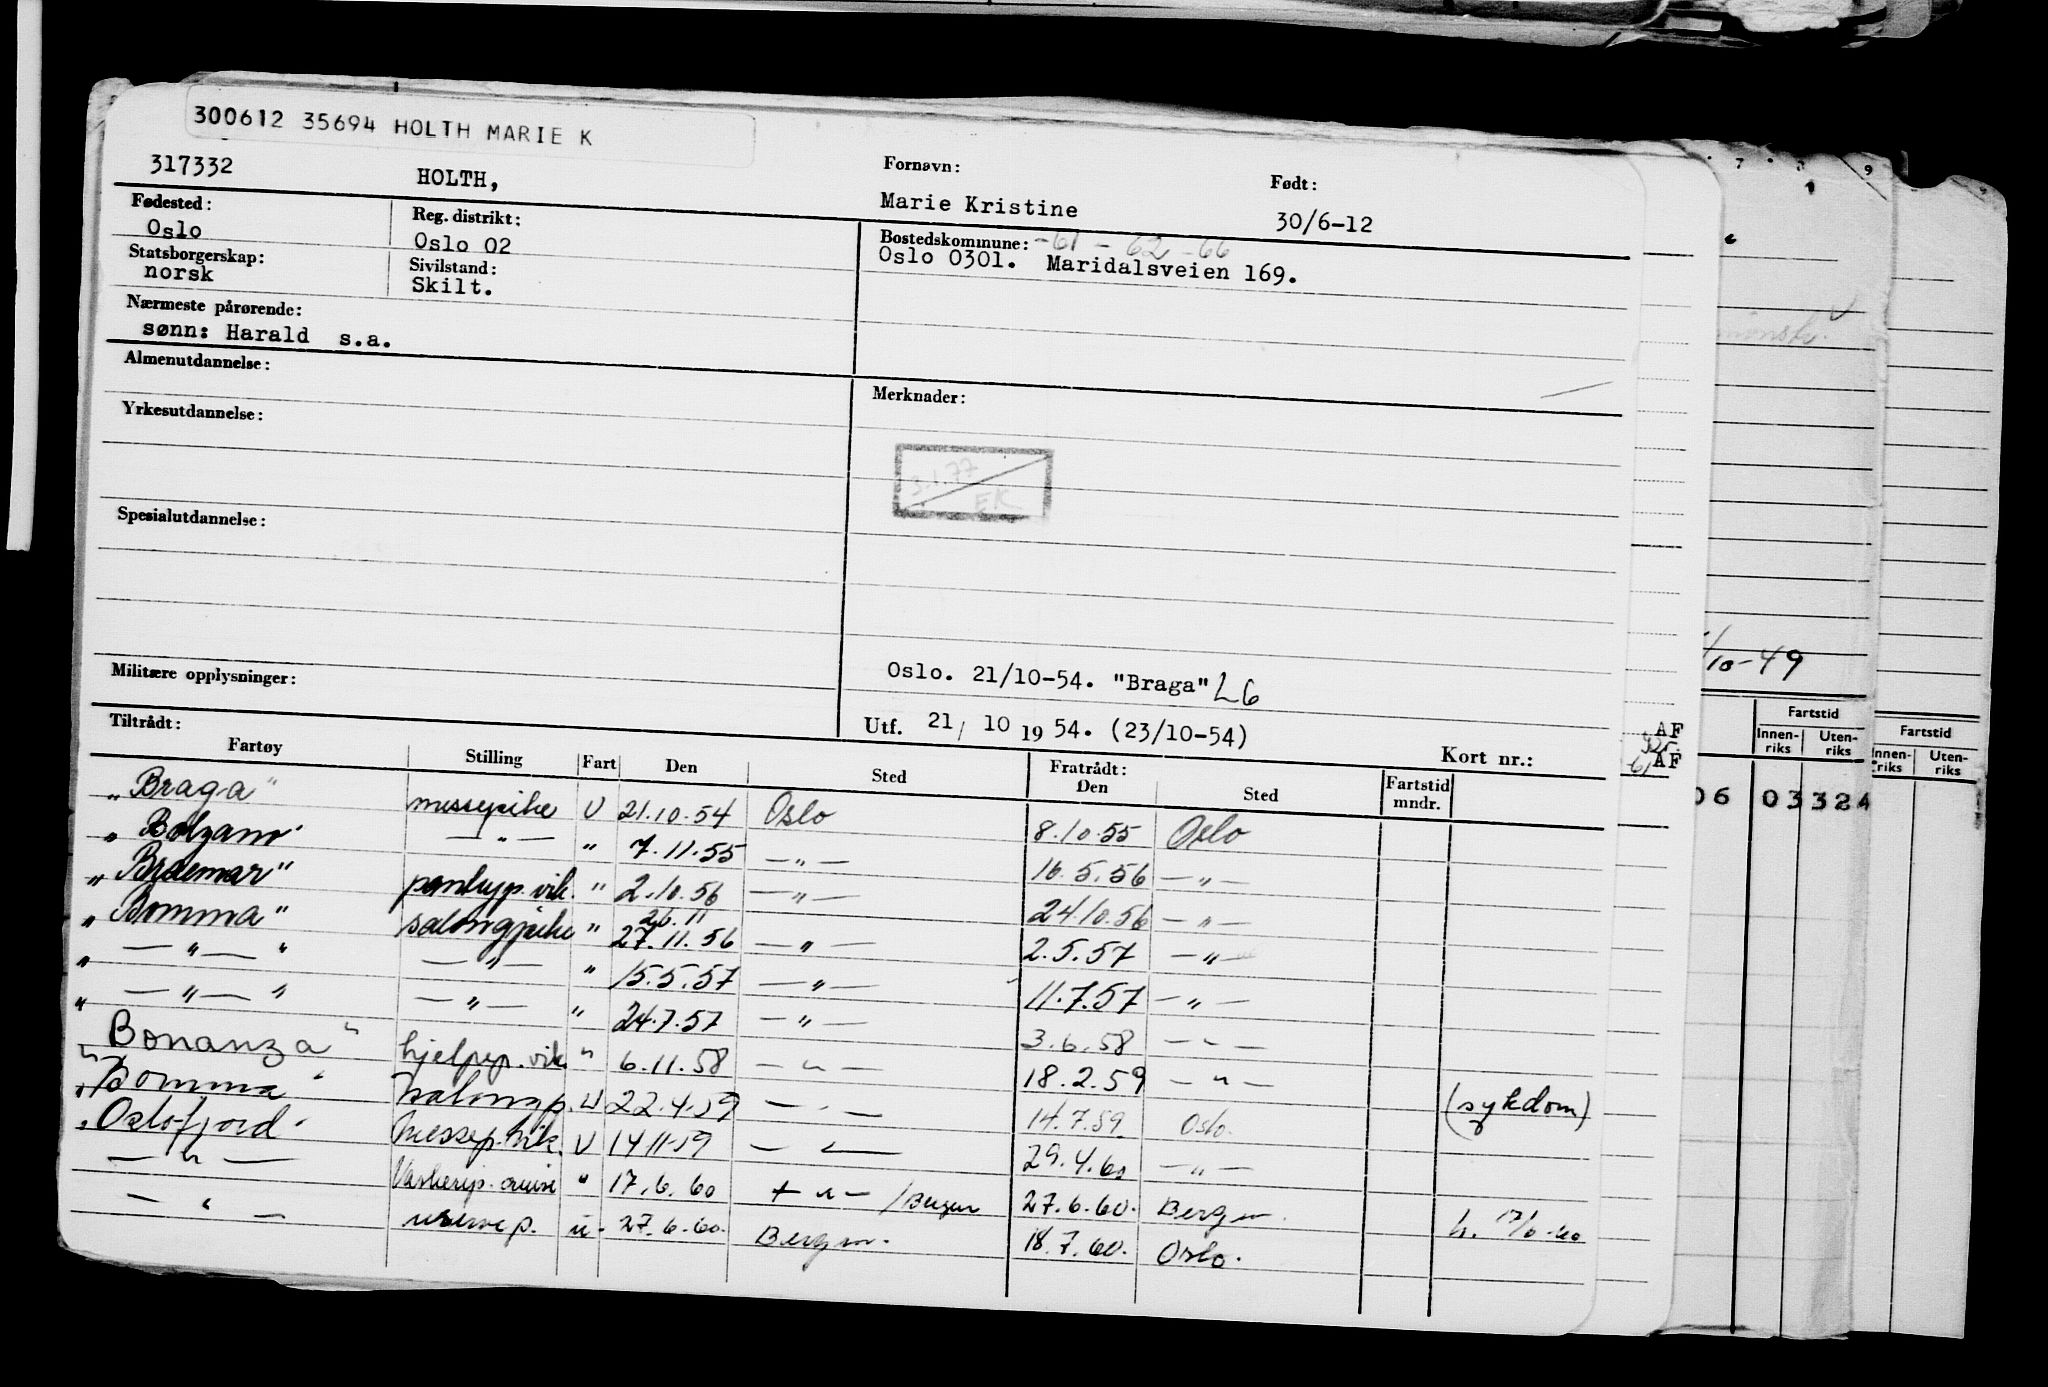 300612 35694 HOLTH MARIE K
317332 HOLTH, Fornavn: Marie Kristine Født: 30/6-12
Fødested: Oslo Reg. distrikt: Oslo 02 Bostedskommune: -61 - 62 - 66
Oslo 0301. Maridalsveien 169.
Statsborgerskap: norsk Sivilstand: Skilt.
Nærmeste pårørende:
sønn: Harald s.a.
Almenutdannelse:
Merknader:
Yrkesutdannelse:
3.1.77
EK
Spesialutdannelse:
Militære opplysninger:
Oslo. 21/10-54. "Braga" L6
Utf. 21/ 10 19 54. (23/10-54)
Tiltrådt: Kort nr.:
Fartøy Stilling Fart Den Sted Fratrådt: Den Sted Fartstid mndr.
"Braga" messepike U 21.10.54 Oslo 8.10.55 Oslo
"Bolzano" — " — " 7.11.55 — " — 16.5.56 — " —
"Braemar" pantryp. vik. " 2.10.56 — " — 24.10.56 — " —
26.11
"Bomma" salongpike " 27.11.56 — " — 2.5.57 — " —
" — " — " — " — " 15.5.57 — " — 11.7.57 — " —
" — " — " — " — " 24.7.57 — " — 3.6.58 — " —
"Bonanza" hjelpep. vik. " 6.11.58 — " — 18.2.59 — " —
"Bomma" salongp. U 22.4.59 — " — 14.7.59 Oslo. (sykdom)
"Oslofjord" Messep. vik. U 14.11.59 — " — 29.4.60 — " —
— " — " 17.6.60 — " — /Bergen 27.6.60. Bergen.
— " — reservep. u. 27.6.60. Bergen. 18.7.60. Oslo.
h. 17/6-60
7 8 9
/10-49
AF
AF
Fartstid
Innen-riks Uten-riks
06 03 324
Fartstid
Innen-riks Uten-riks